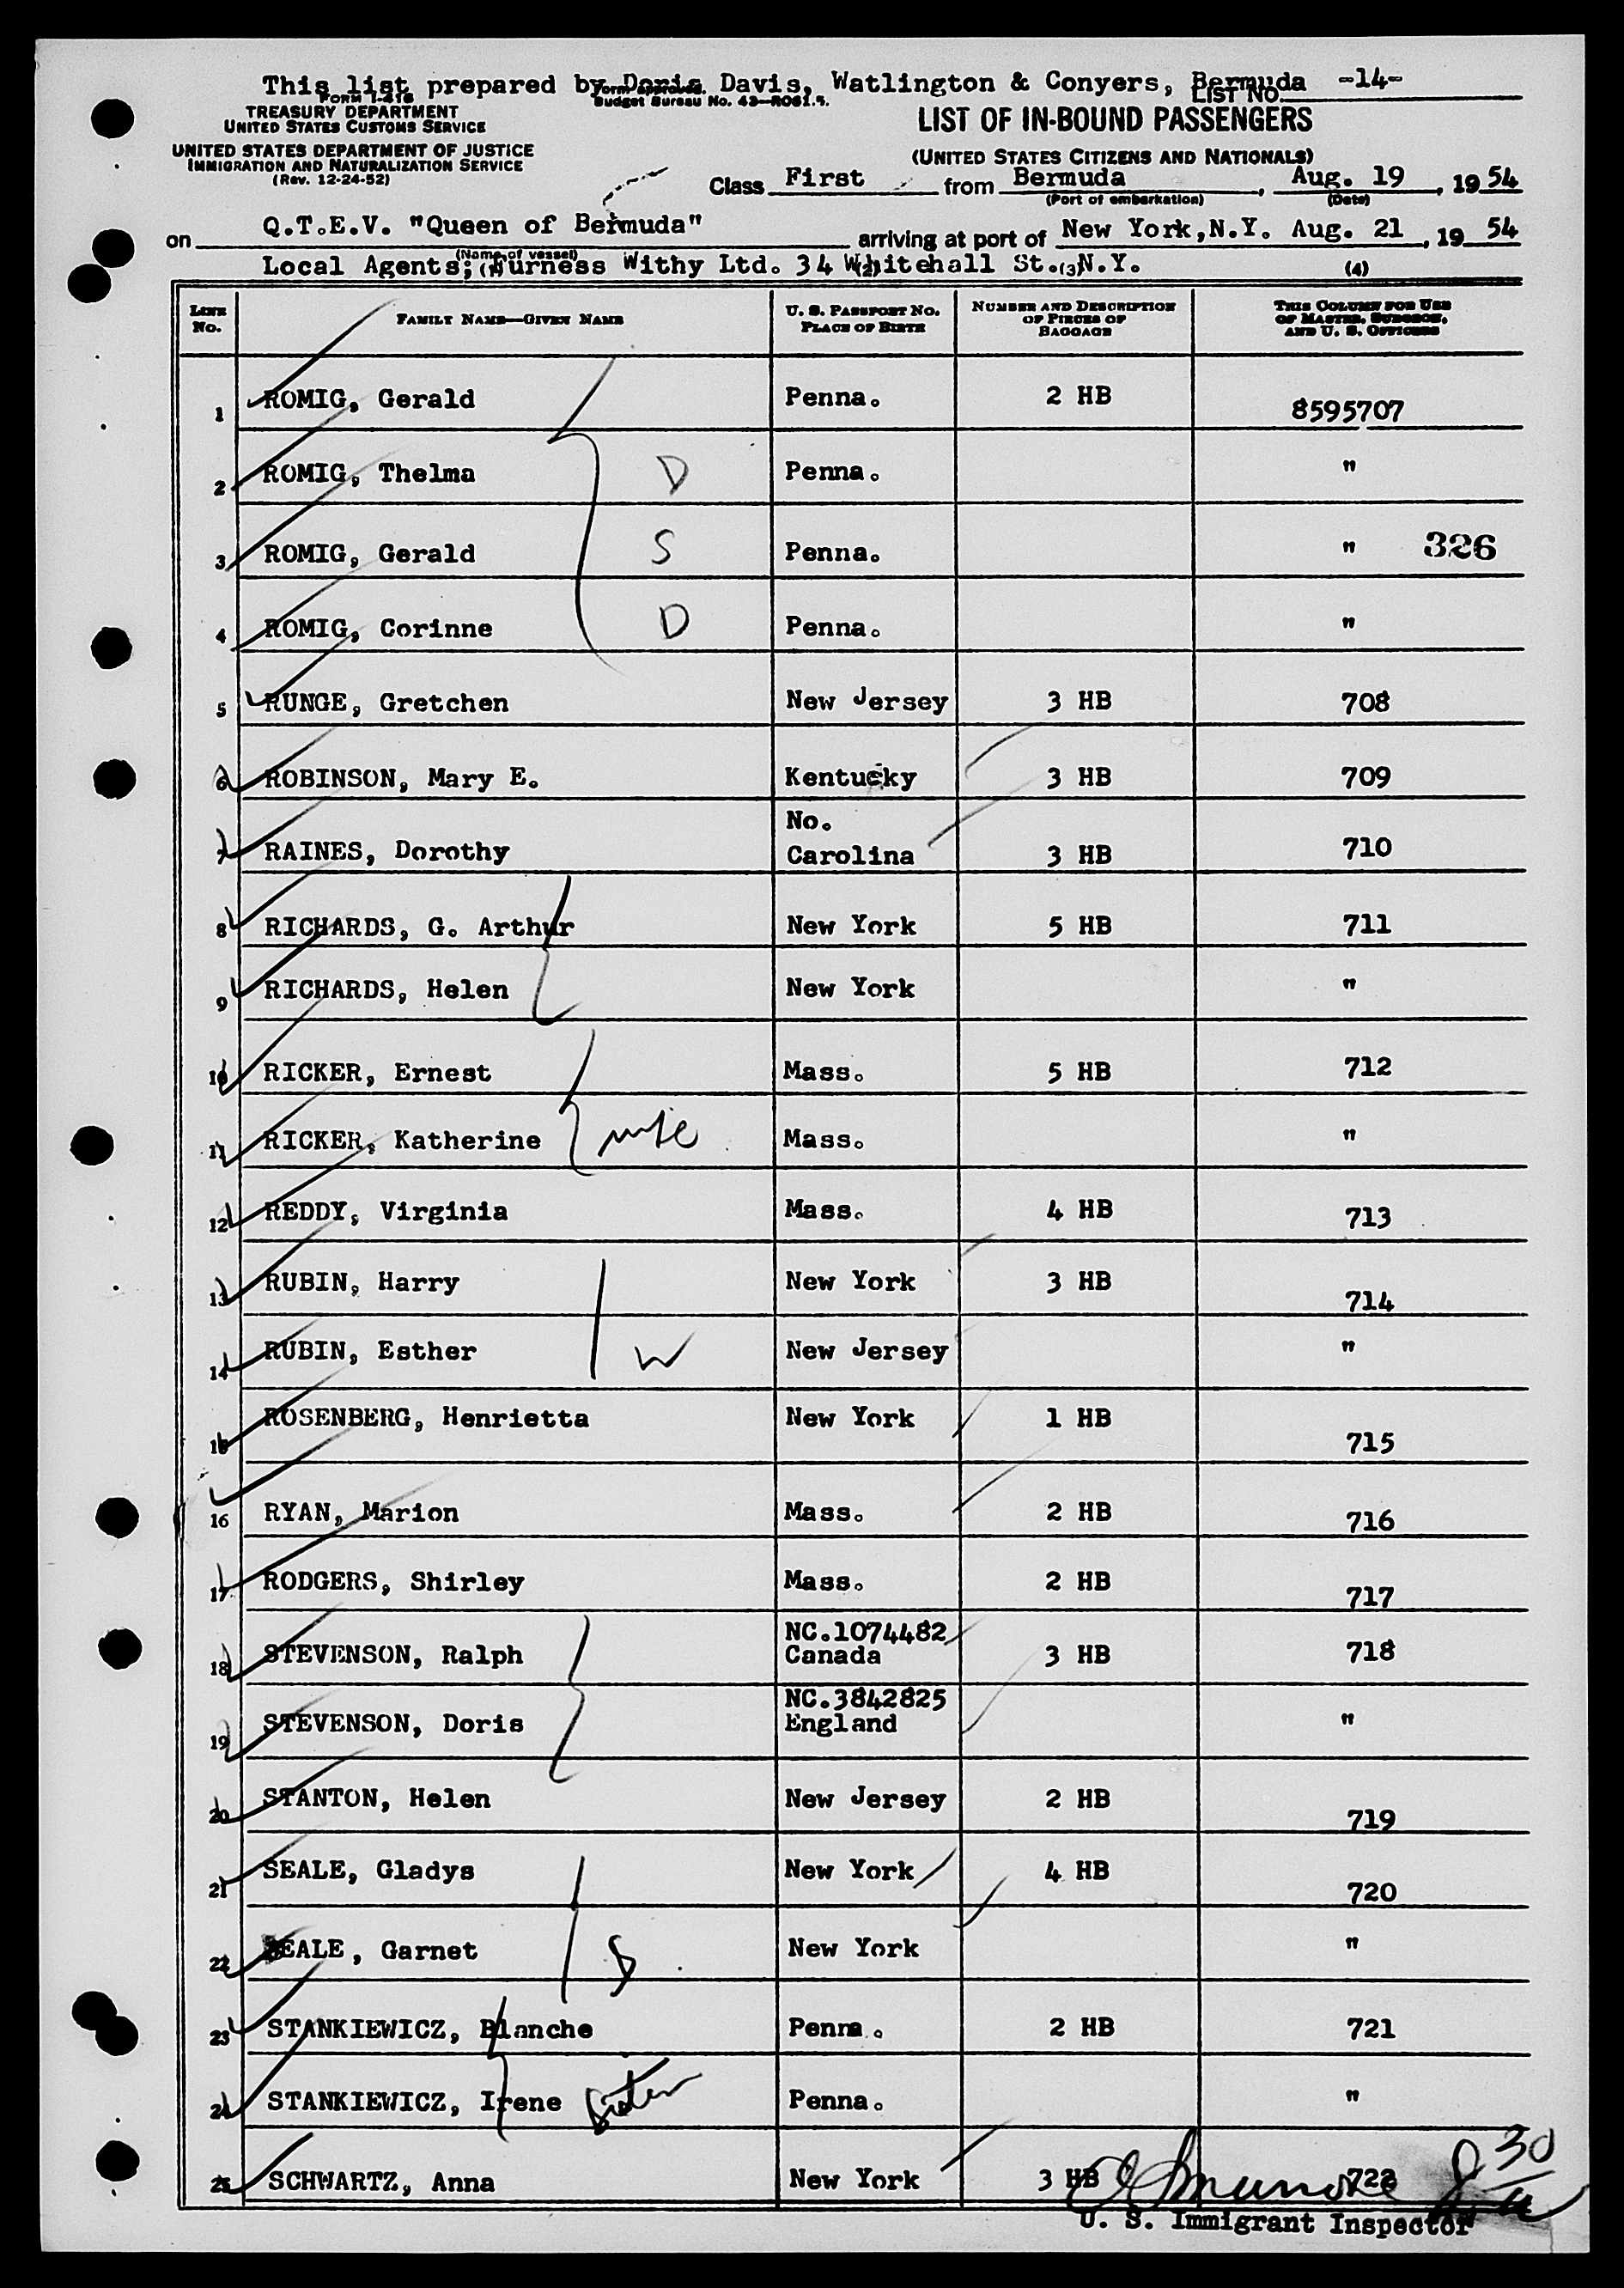 This list prepared by Doris Davis, Watlington & Conyers, Bermuda -14-
FORM I-418 Form approved. LIST NO.
TREASURY DEPARTMENT Budget Bureau No. 43—R061.5.
UNITED STATES CUSTOMS SERVICE
LIST OF IN-BOUND PASSENGERS
UNITED STATES DEPARTMENT OF JUSTICE
IMMIGRATION AND NATURALIZATION SERVICE
(Rev. 12-24-52)
(UNITED STATES CITIZENS AND NATIONALS)
Class First from Bermuda, Aug. 19, 19 54
(Port of embarkation) (Date)
on Q.T.E.V. "Queen of Bermuda" arriving at port of New York,N.Y. Aug. 21, 19 54
(Name of vessel)
Local Agents; Furness Withy Ltd. 34 Whitehall St. N.Y.
(1) (2) (3) (4)
LINE NO. FAMILY NAME—GIVEN NAME U. S. PASSPORT NO. PLACE OF BIRTH NUMBER AND DESCRIPTION OF PIECES OF BAGGAGE THIS COLUMN FOR USE OF MASTER, SURGEON, AND U. S. OFFICERS
1 ROMIG, Gerald Penna. 2 HB 8595707
2 ROMIG, Thelma D Penna. "
3 ROMIG, Gerald S Penna. " 326
4 ROMIG, Corinne D Penna. "
5 RUNGE, Gretchen New Jersey 3 HB 708
6 ROBINSON, Mary E. Kentucky 3 HB 709
7 RAINES, Dorothy No. Carolina 3 HB 710
8 RICHARDS, G. Arthur New York 5 HB 711
9 RICHARDS, Helen New York "
10 RICKER, Ernest Mass. 5 HB 712
11 RICKER, Katherine wife Mass. "
12 REDDY, Virginia Mass. 4 HB 713
13 RUBIN, Harry New York 3 HB 714
14 RUBIN, Esther W New Jersey "
15 ROSENBERG, Henrietta New York 1 HB 715
16 RYAN, Marion Mass. 2 HB 716
17 RODGERS, Shirley Mass. 2 HB 717
18 STEVENSON, Ralph NC.1074482 Canada 3 HB 718
19 STEVENSON, Doris NC.3842825 England "
20 STANTON, Helen New Jersey 2 HB 719
21 SEALE, Gladys New York 4 HB 720
22 SEALE, Garnet New York "
23 STANKIEWICZ, Blanche Penna. 2 HB 721
24 STANKIEWICZ, Irene Sister Penna. "
25 SCHWARTZ, Anna New York 3 HB 722
30
U. S. Immigrant Inspector